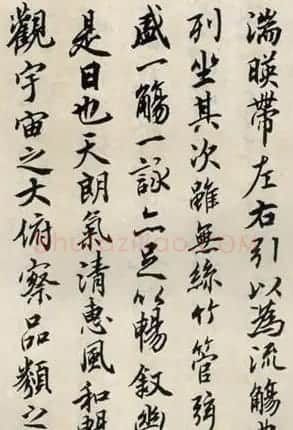 湍暎帶左右引以為流觴
列坐其次雖無絲竹管弦
盛一觴一詠亦足以暢叙幽
是日也天朗氣清惠風和
觀宇宙之大俯察品類之